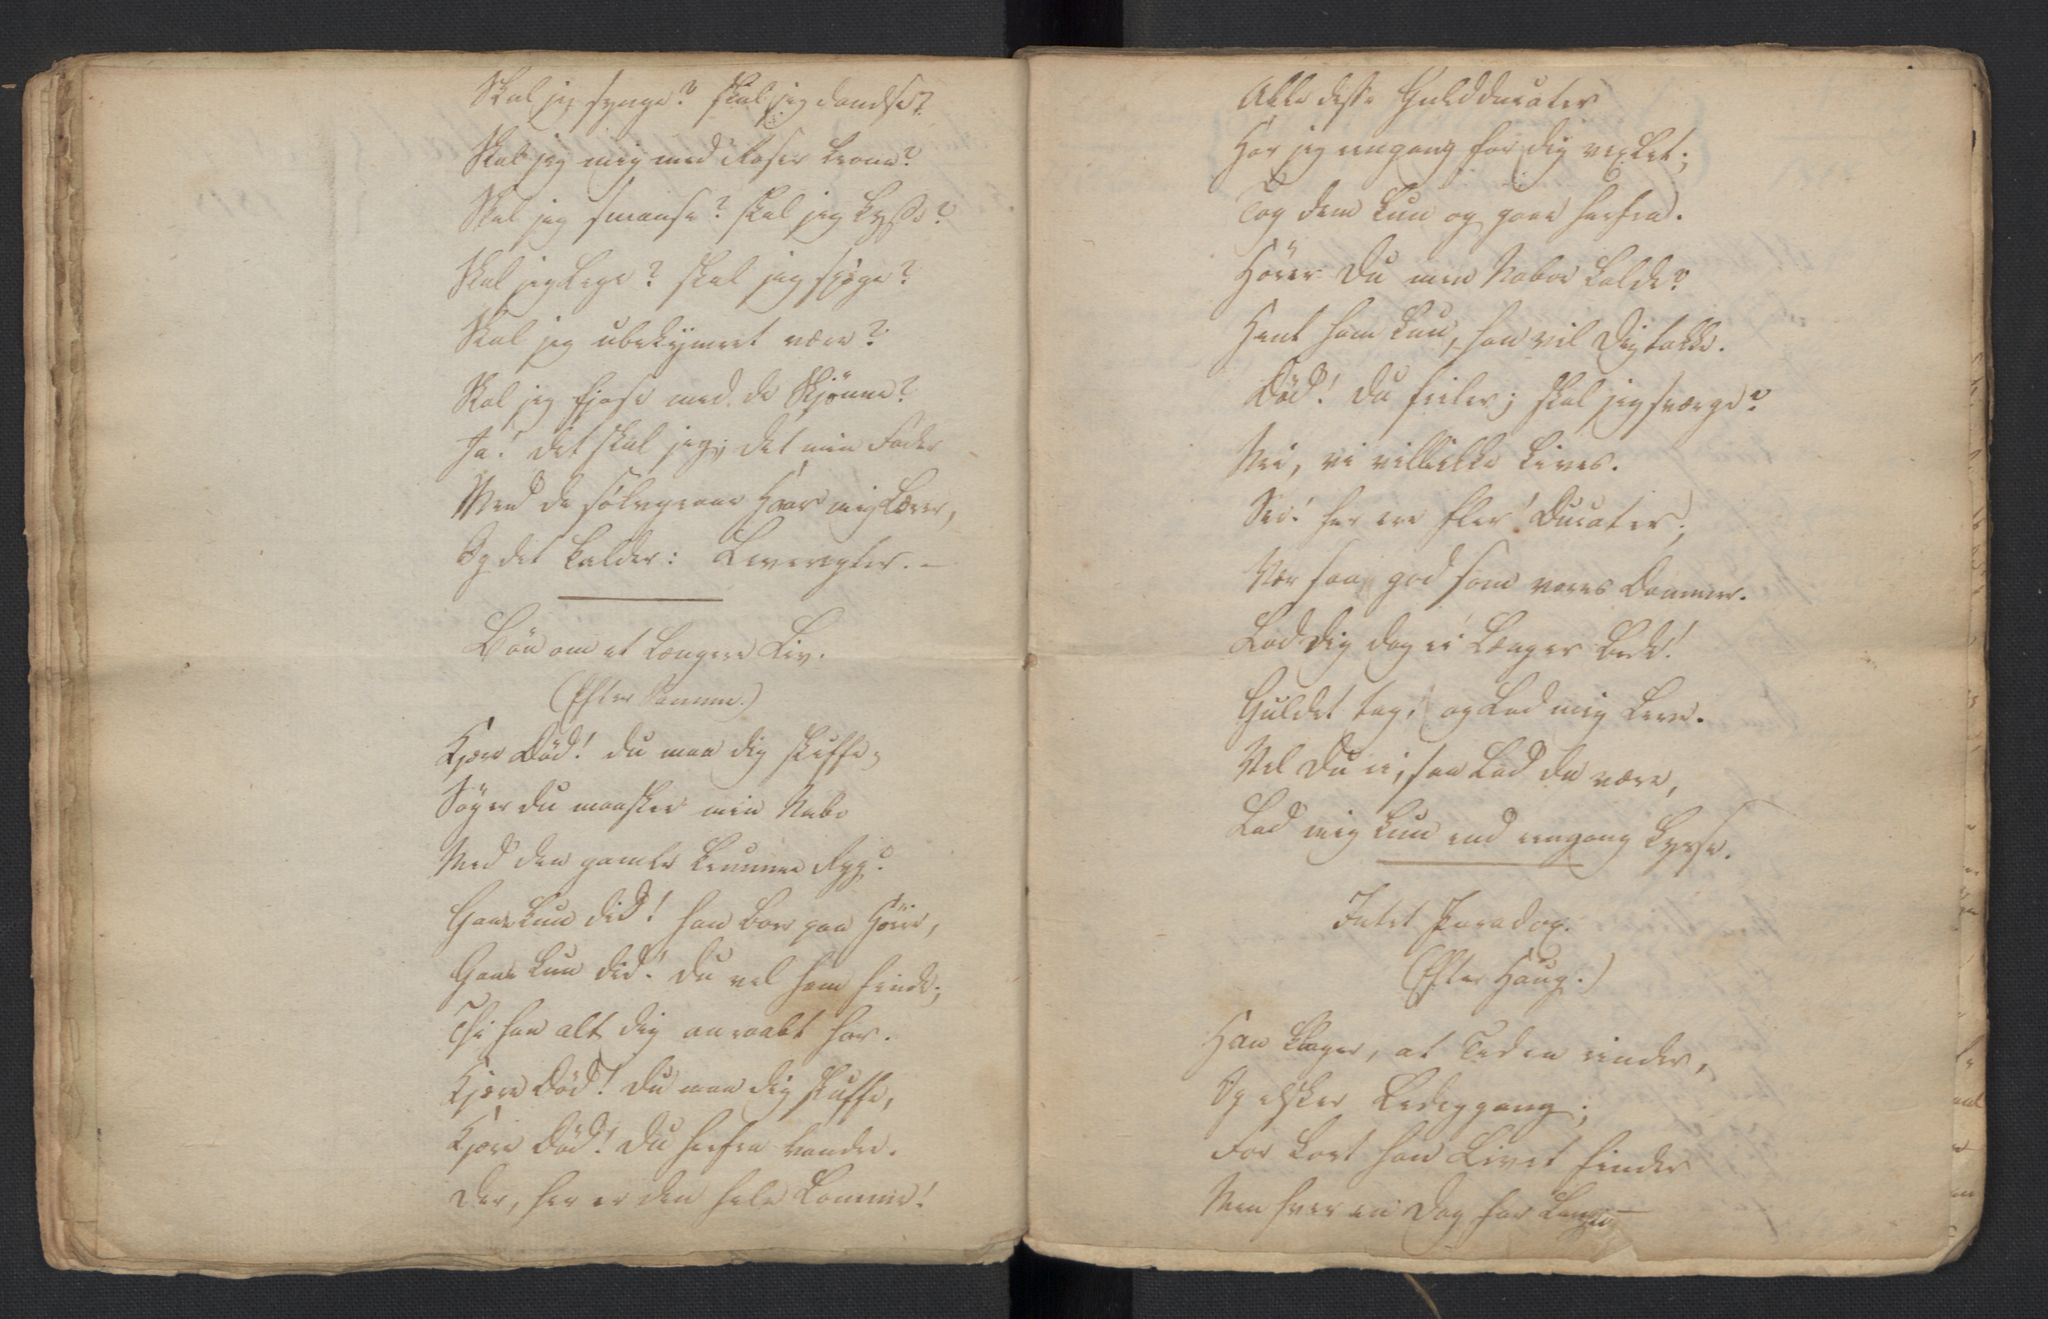 Skal jeg synge? skal jeg dandse?
Skal jeg mig med Roser krone?
Skal jeg smause? skal jeg kysse?
Skal jeg lege? skal jeg spøge?
Skal jeg ubekymret være?
Skal jeg fjase med de Skjønne?
Ja! det skal jeg; det min Fader
Med de sølvgraae Haar mig lærer,
Og det kalder: Leveregler. –
Bön om et længere Liv.
(Efter)
Kjære Död! du maa dig skuffe;
Söger du maaskee min Nabo
Med den gamle krumme Ryg?
Gaae kun did! han boer paa Høire,
Gaae kun did! du vel ham finde;
Thi han alt dig anraabt har.
Kjære Död! du maa dig skuffe,
Kjære Död! du herfra vandre.
Der, her er den hele Lomme!
Alle disse Guldducater
Har jeg engang for dig vexlet;
Tag dem kun og gaae herfra.
Hörer du min Naboe kalde?
Hent ham kun, han vil dig takke.
Död! du feiler; skal jeg sværge?
Nei, vi ville ikke kives.
See! her ere fler' Ducater;
Vær saa god som vores Dommer.
Lad dig dog ei længer bede!
Guldet tag, og lad mig leve.
Vil du ei, saa lad da være,
Lad mig kun end eengang kysse.
Intet Paradox.
(Efter Haug.)
Han klager, at Tiden rinder,
Og elsker Lediggang;
For kort han Livet finder
Men hver en Dag for lang –